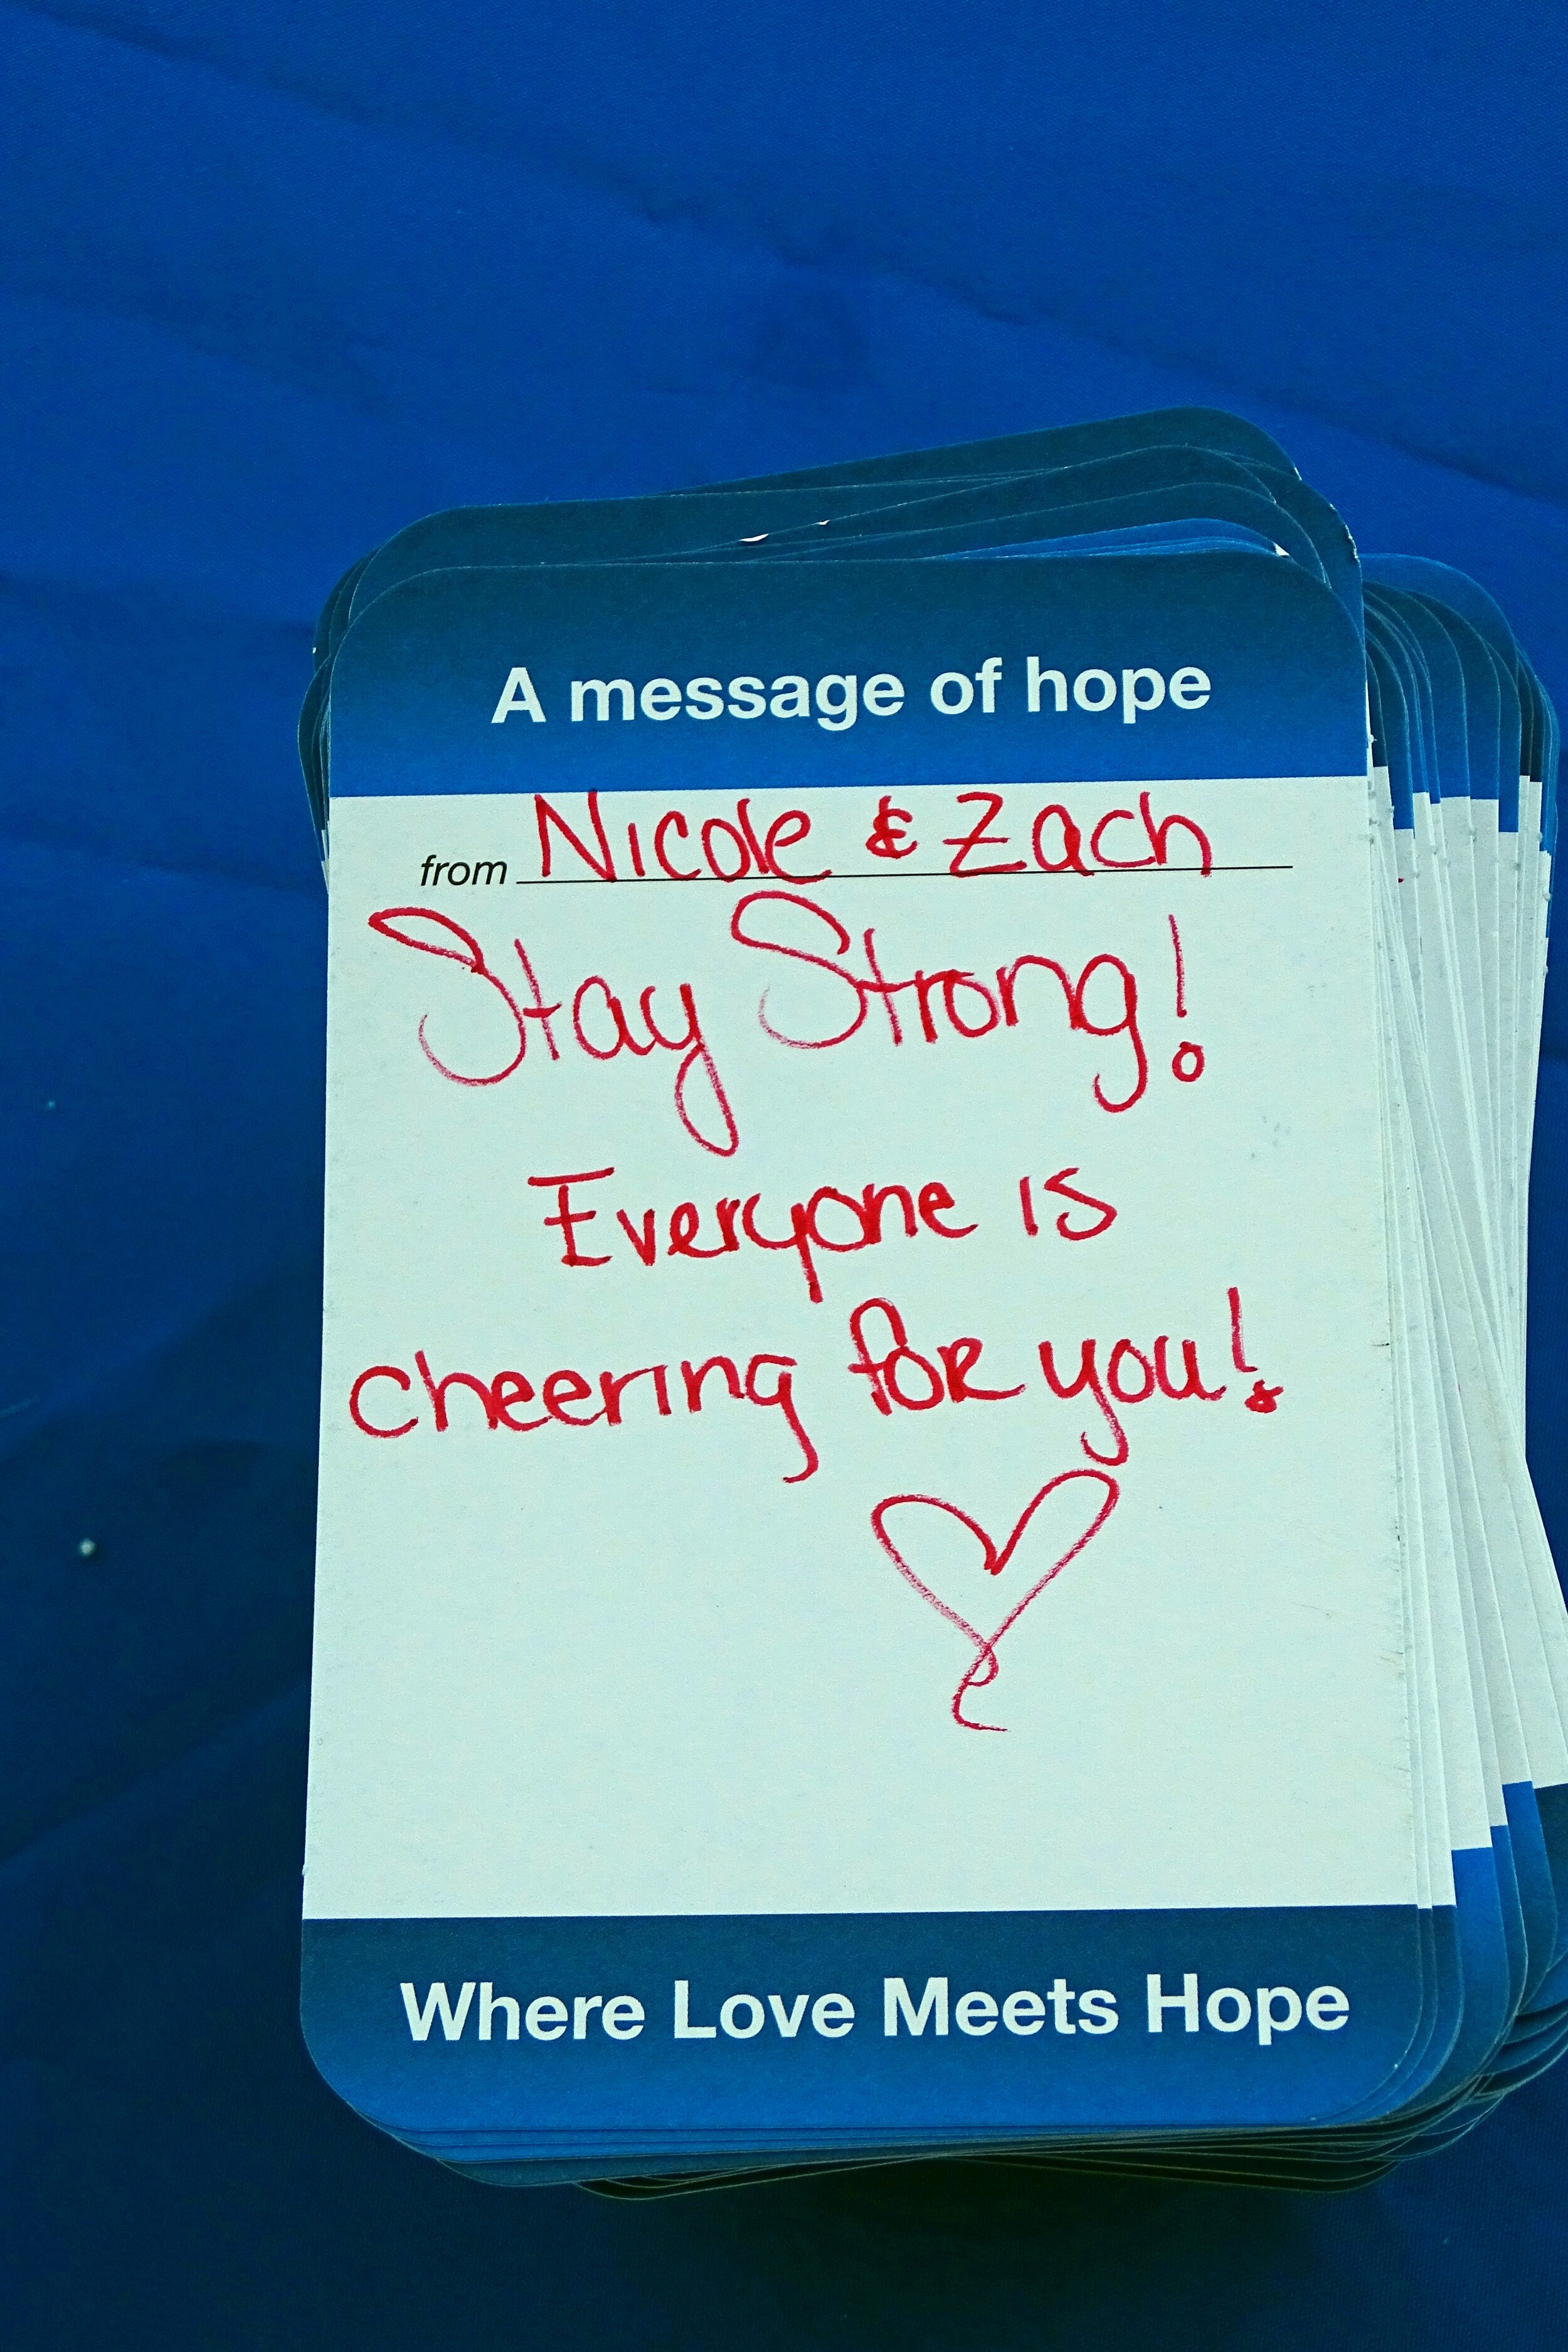 A message of hope
from Nicole & Zach
Stay Strong!
Everyone is
cheering for you!
Where Love Meets Hope